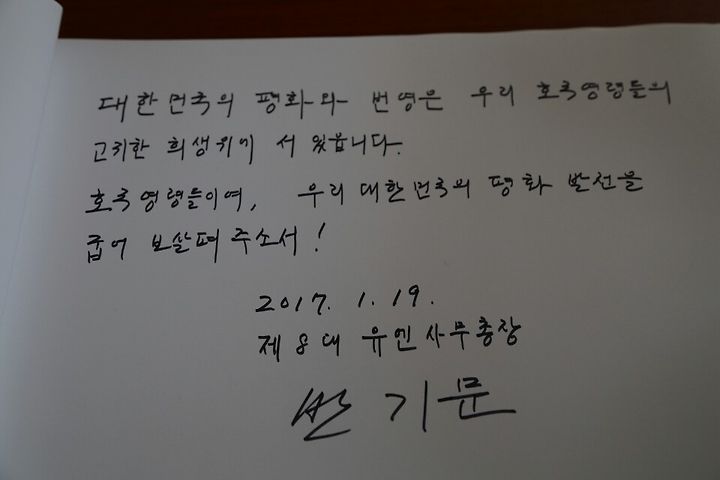 대한민국의 평화와 번영은 우리 호국영령들의
고귀한 희생위에 서 있읍니다.
호국영령들이여, 우리 대한민국의 평화 발전을
굽어 보살펴주소서!
2017. 1. 19.
제8대 유엔사무총장
반기문